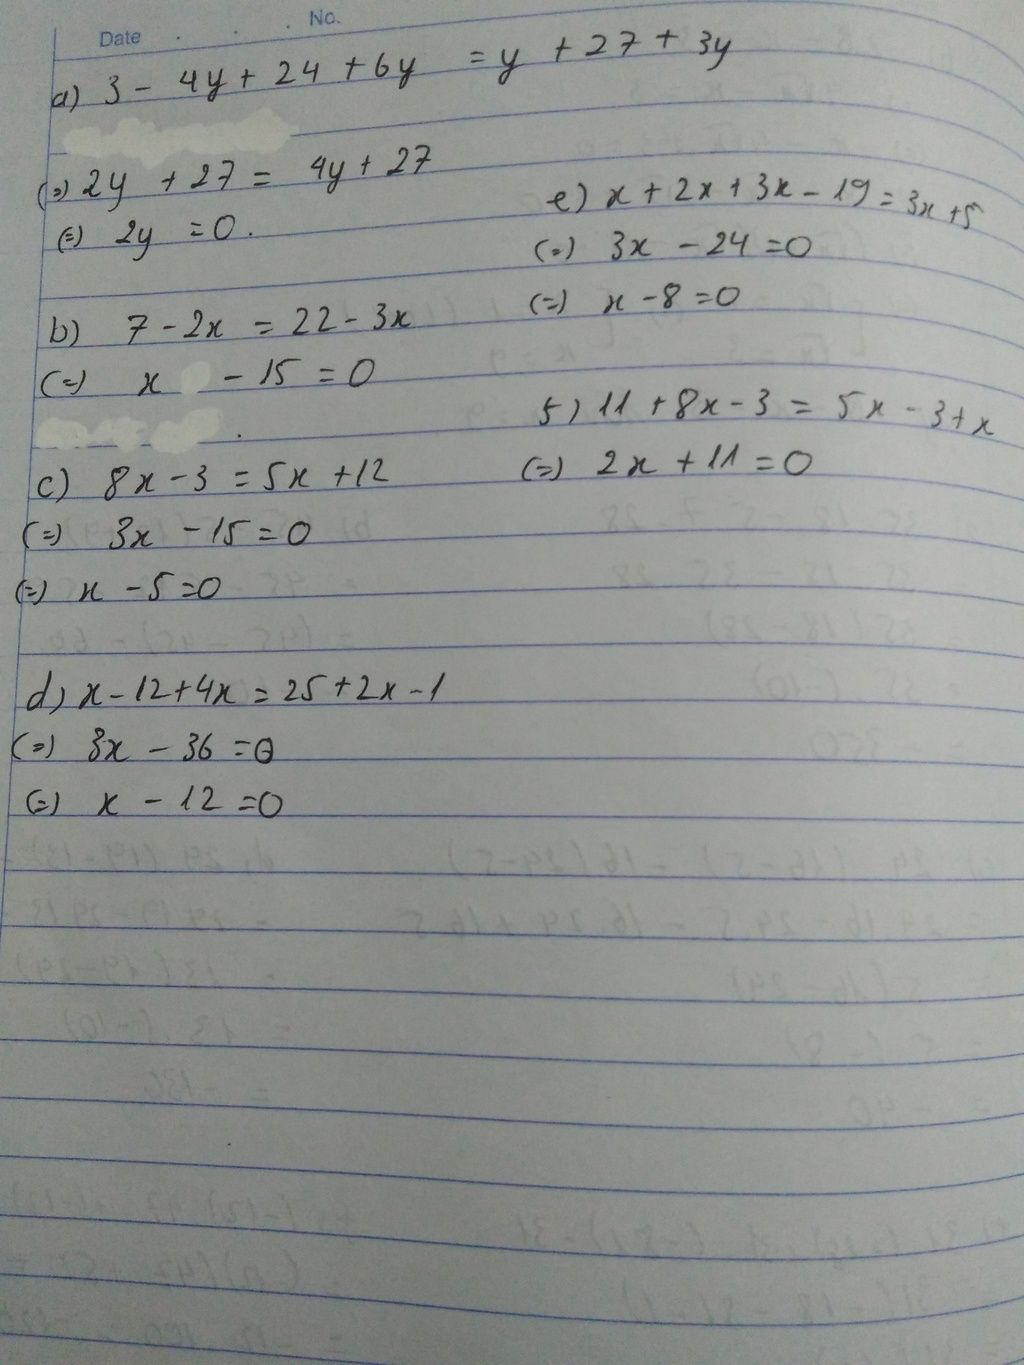 Date . . . No.
a) 3 - 4y + 24 + 6y = y + 27 + 3y
(=) 2y + 27 = 4y + 27
(=) 2y = 0.
b) 7 - 2x = 22 - 3x
(=) x - 15 = 0
c) 8x - 3 = 5x + 12
(=) 3x - 15 = 0
(=) x - 5 = 0
d) x - 12 + 4x = 25 + 2x - 1
(=) 3x - 36 = 0
(=) x - 12 = 0
e) x + 2x + 3x - 19 = 3x + 5
(=) 3x - 24 = 0
(=) x - 8 = 0
5) 11 + 8x - 3 = 5x - 3 + x
(=) 2x + 11 = 0